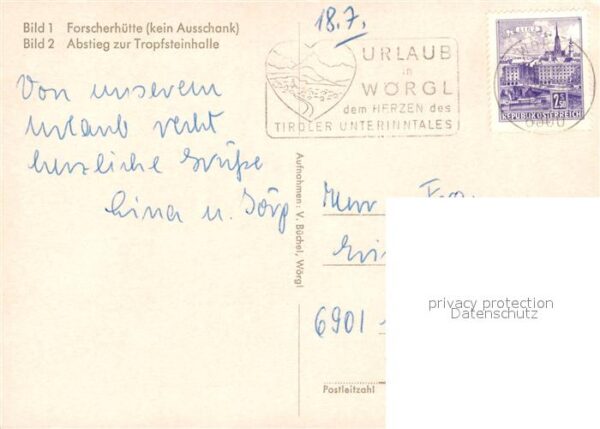 Bild 1 Forscherhütte (kein Ausschank)
Bild 2 Abstieg zur Tropfsteinhalle
18.7.
URLAUB
in
WÖRGL
dem HERZEN des
TIROLER UNTERINNTALES
LINZ
2.50
REPUBLIK ÖSTERREICH
Von unserem
Urlaub recht
herzliche Grüße
Lina u. Jörg
Aufnahmen: V. Büchel, Wörgl
Herr Frau
6901
Postleitzahl
privacy protection
Datenschutz